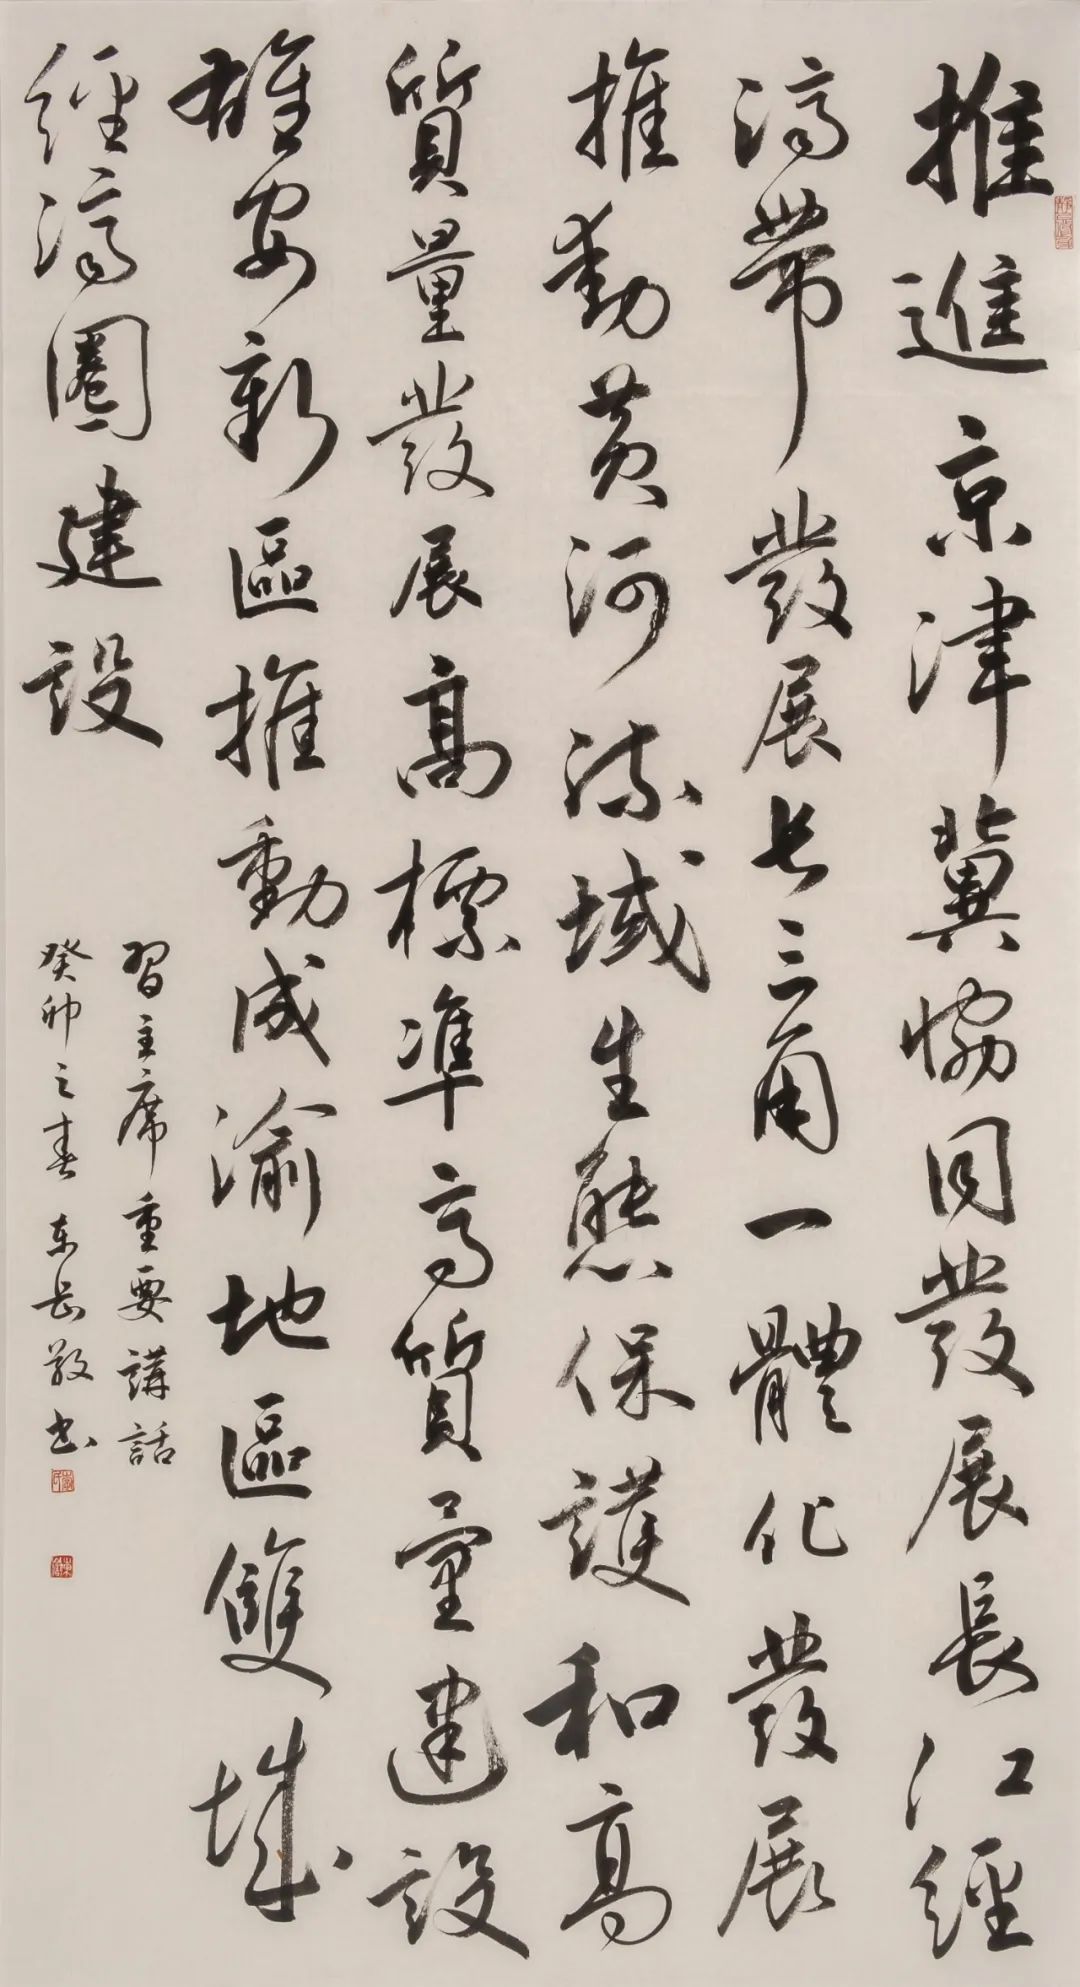 推進京津冀協同發展長江經
濟帶發展长三角一體化發展
推動黄河流域生態保護和高
質量發展高標準高質量建設
雄安新區推動成渝地區雙城
經濟圈建設
習主席重要講話
癸卯之春 东岳敬书